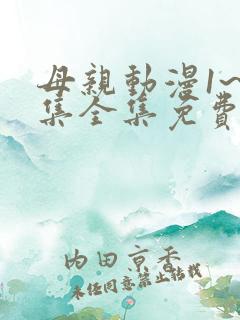 母親動漫1~
集全集免費
內田京香
未任同意禁止转载